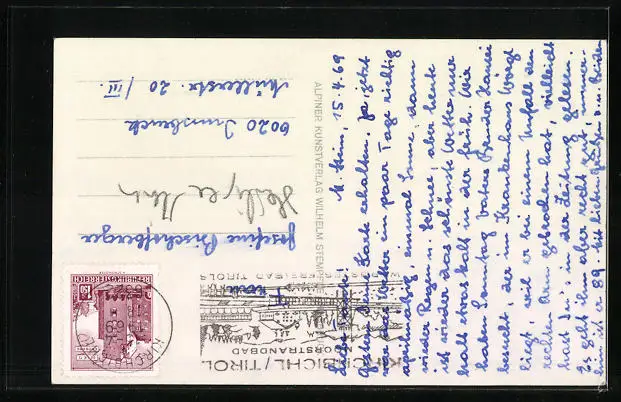 M. Stein, 15.4.69
gestern Deine Karte erhalten. Ja jetzt
war das Wetter ein paar Tage richtig
aprilmäßig, einmal Sonne, dann
wieder Regen u. Schnee, aber heute
ist wieder das schönste Wetter nur
halt etwas kalt in der Früh. Wir
haben Samstag Vaters Bruder
besucht der im Krankenhaus Wörgl
liegt, weil er bei einem Unfall den
rechten Arm gebrochen hat, vielleicht
hast Du's in der Zeitung gelesen.
Es geht ihm aber recht gut, immer-
hin ist er 89. Mit lieben Grüßen
ALPINER KUNSTVERLAG WILHELM STEMPFLE
Josefine Bischofberger
6020 Innsbruck
Müllerstr. 20 / III.
REPUBLIK ÖSTERREICH
KIRCHBICHL/TIROL
VORSTRANDBAD